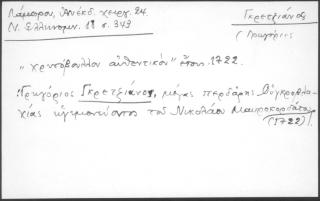 Λάμπρου, Ἀνέκδ. χειρ. 24.
Ν. Ἑλληνομν. 11 σ. 343
Γκρετζιάνος
(Γρηγόριος
"χρυσόβουλλον αὐθεντικὸν" ἔτους 1722.
Γρηγόριος Γκρετζιάνος, μέγας
Οὑγκροβλα-
χίας ἡγεμονεύοντος τοῦ Νικολάου Μαυροκορδάτου
(1722)